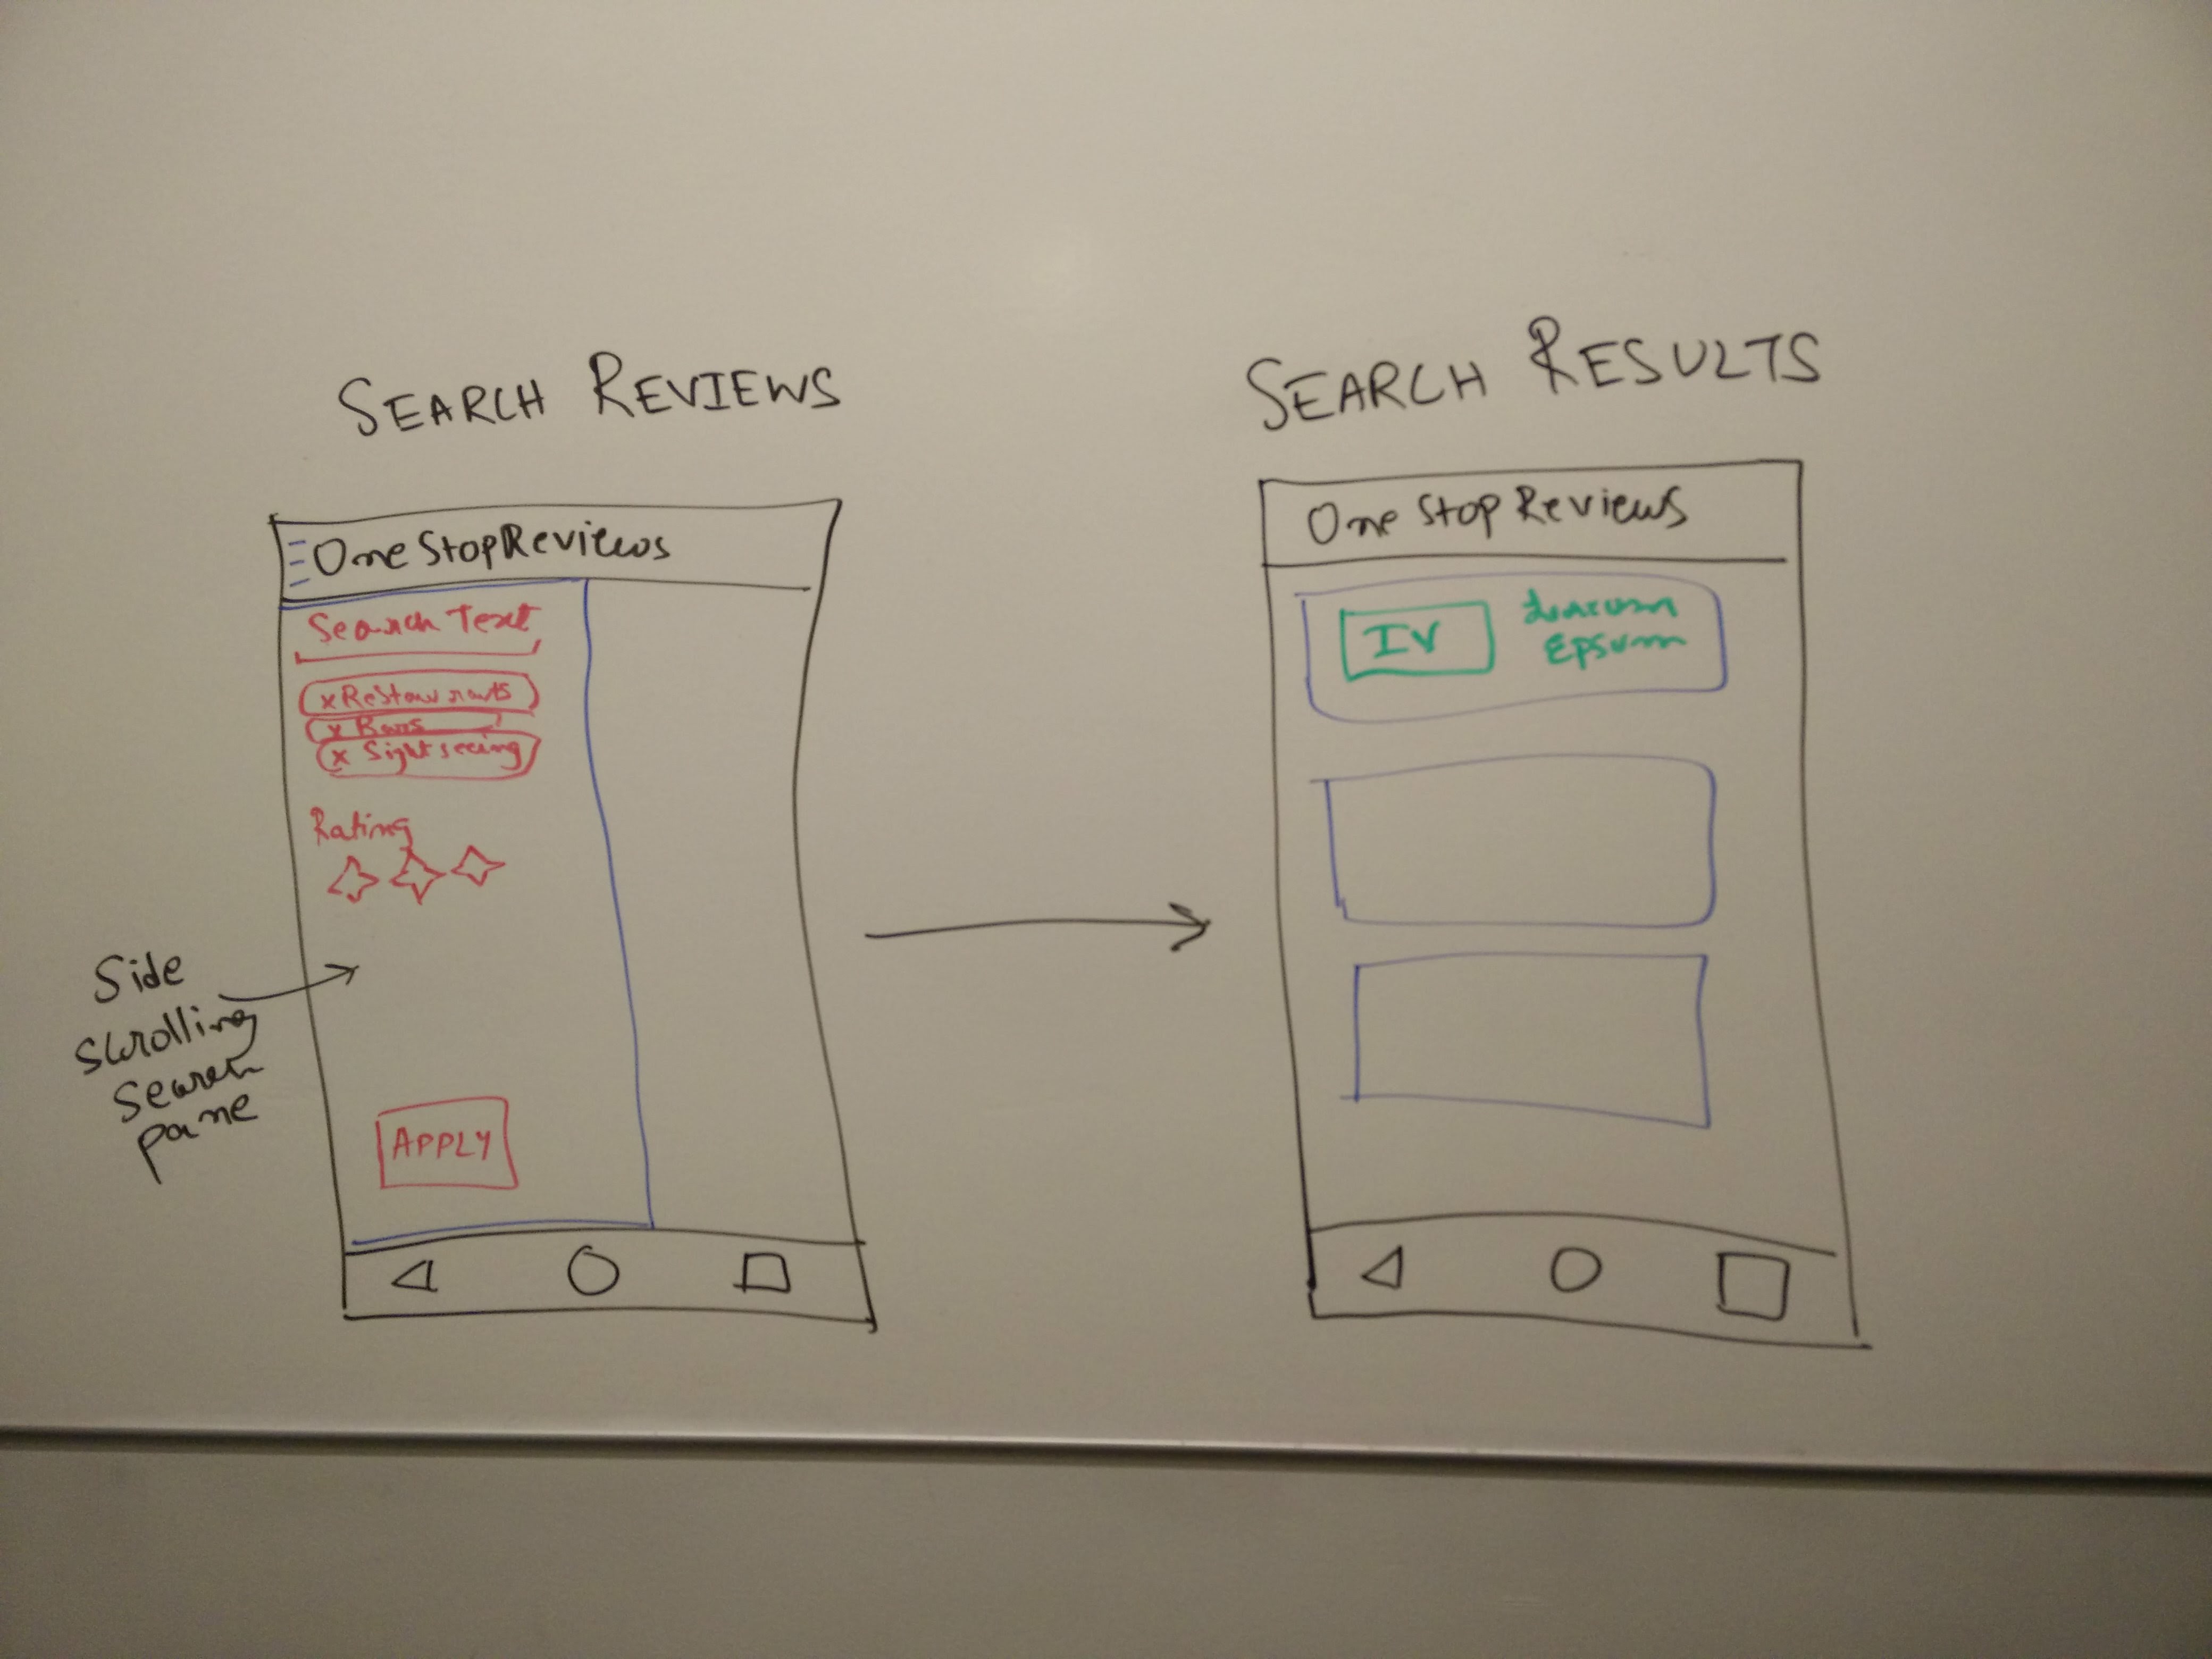 SEARCH REVIEWS
OneStopReviews
Search Text
x Restaurants
x Bars
x Sightseeing
Rating
APPLY
Side
scrolling
search
pane
SEARCH RESULTS
One Stop Reviews
IV
Epsum